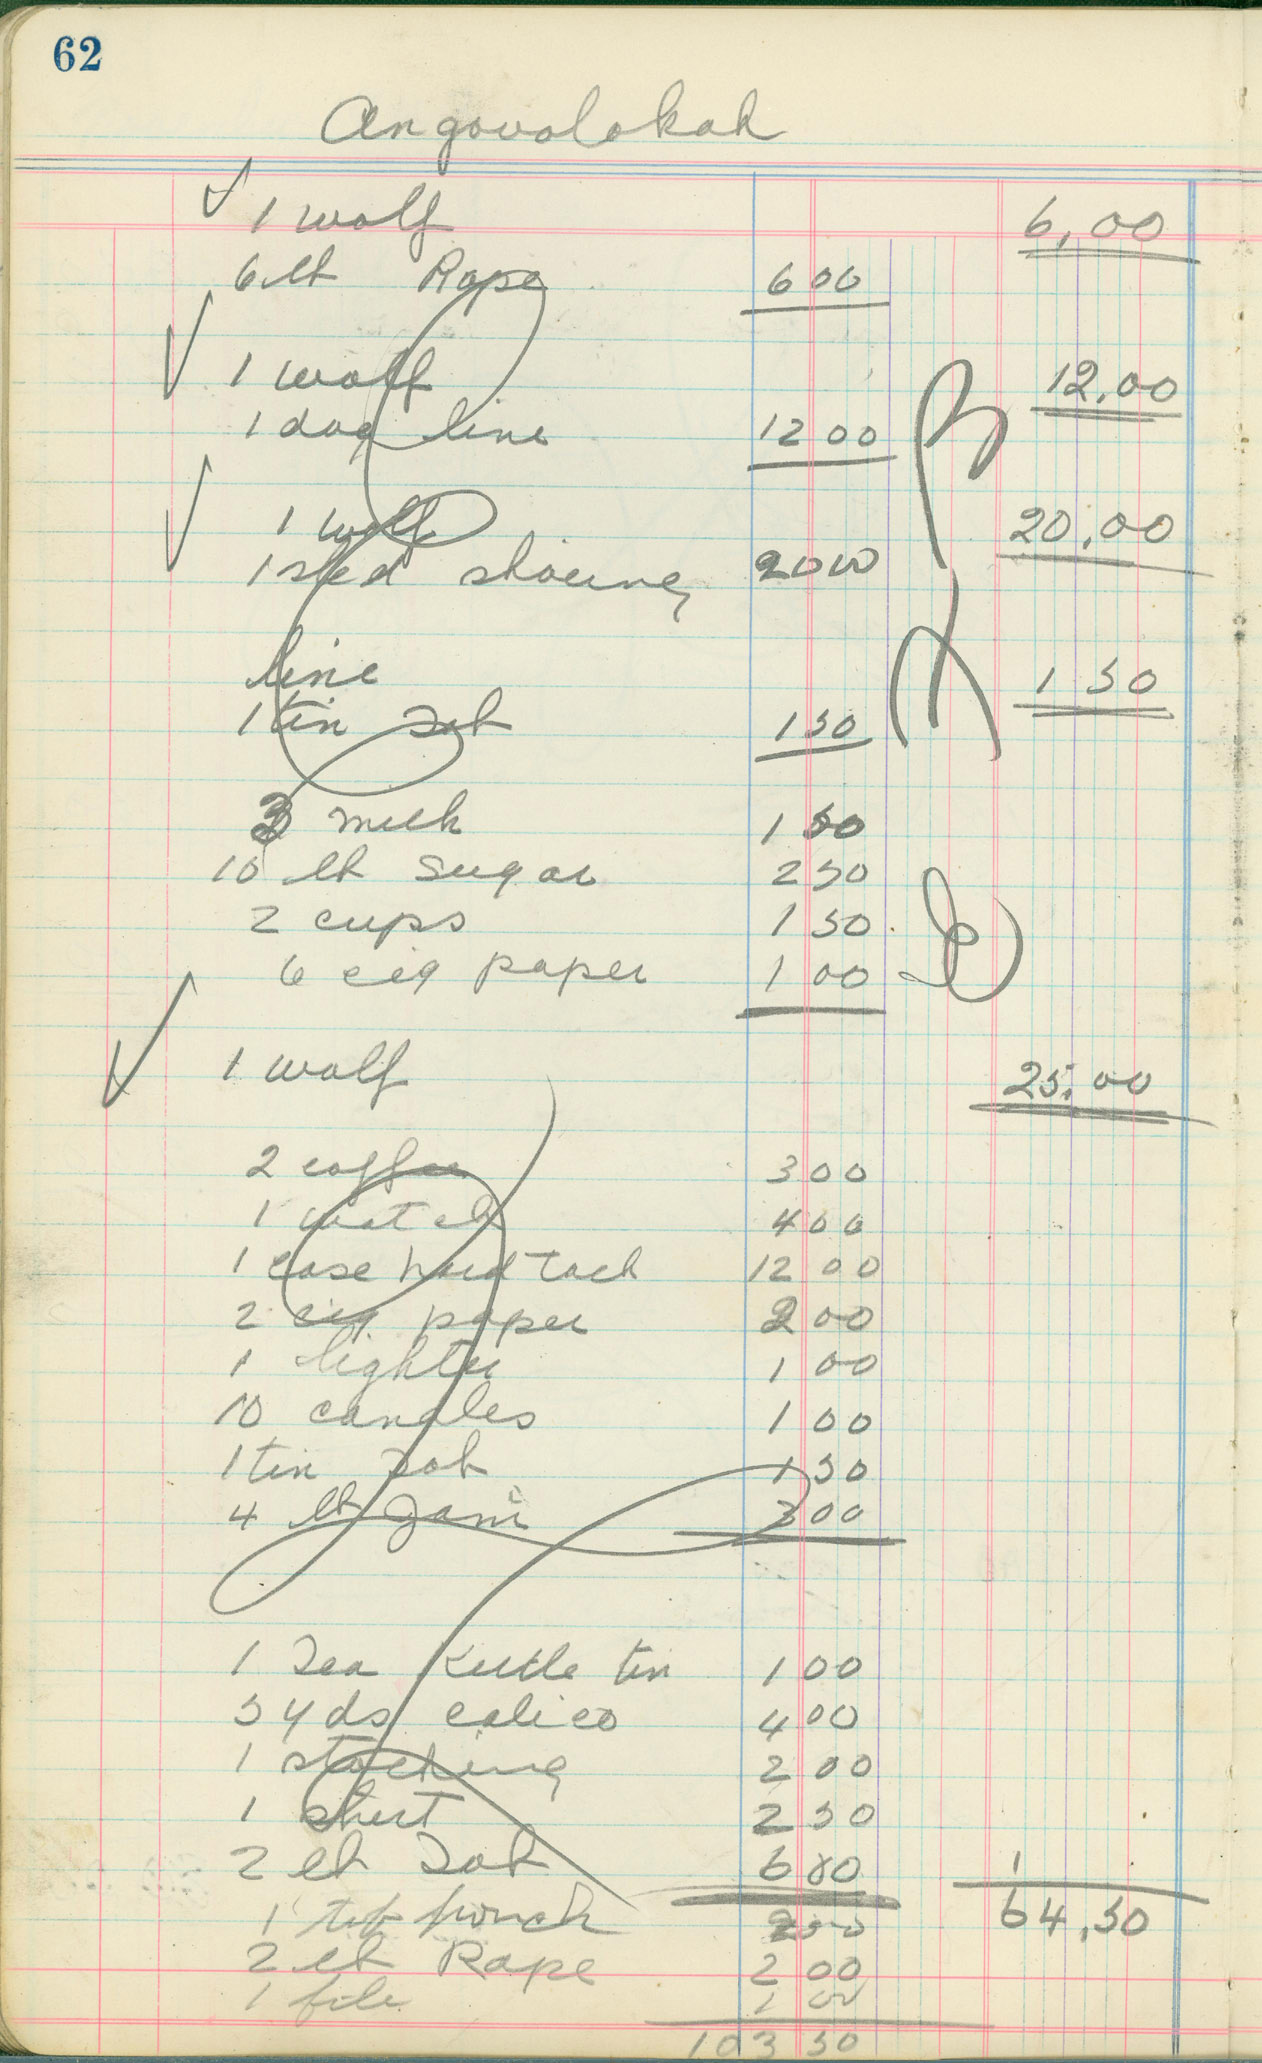 62
Angovolokak
1 wolf 6,00
6 lb Rope 6 00
1 wolf 12,00
1 dog line 12 00
1 wolf 20,00
1 sled shoeing 20 00
line 1 50
1 tin Tob 1 50
3 milk 1 50
10 lb Sugar 2 50
2 cups 1 50
6 cig paper 1 00
1 wolf 25,00
2 coffee 3 00
1 watch 4 00
1 case hard tack 12 00
2 cig paper 2 00
1 lighter 1 00
10 candles 1 00
1 tin Tob 1 50
4 lb Jam 3 00
1 Tea Kettle tin 1 00
5 yds calico 4 00
1 stocking 2 00
1 shirt 2 50
2 lb Tob 6 00 1
64,50
1 tob pouch 2 00
2 lb Rope 2 00
1 file 1 00
103 50